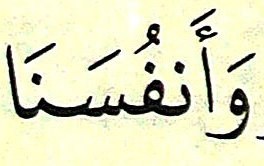 وَأَنفُسَنَا